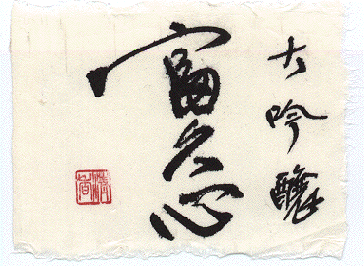 大吟醸
富久心